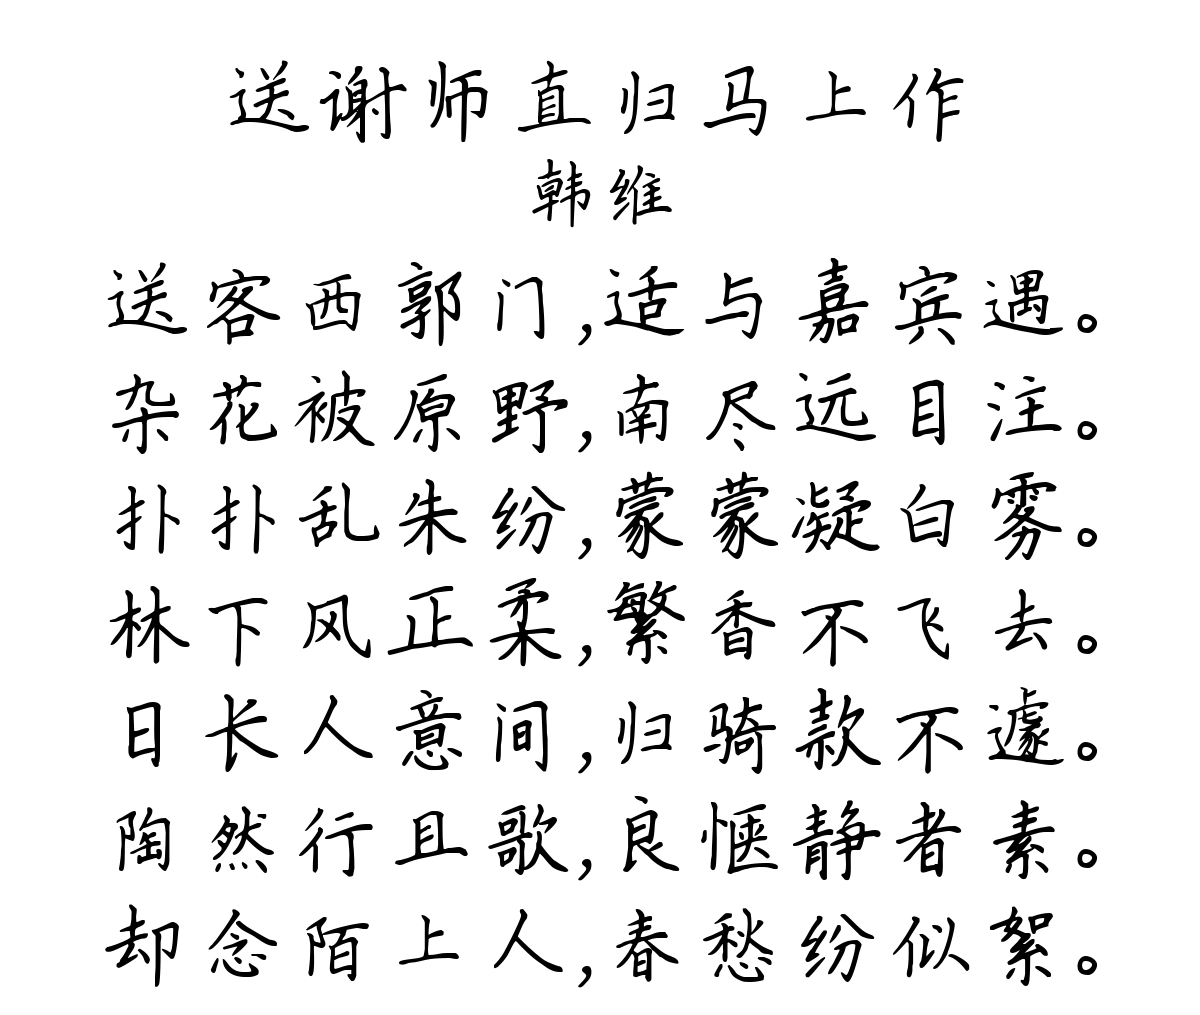 送谢师直归马上作
韩维
送客西郭门,适与嘉宾遇。
杂花被原野,南尽远目注。
扑扑乱朱纷,蒙蒙凝白雾。
林下风正柔,繁香不飞去。
日长人意间,归骑款不遽。
陶然行且歌,良惬静者素。
却念陌上人,春愁纷似絮。